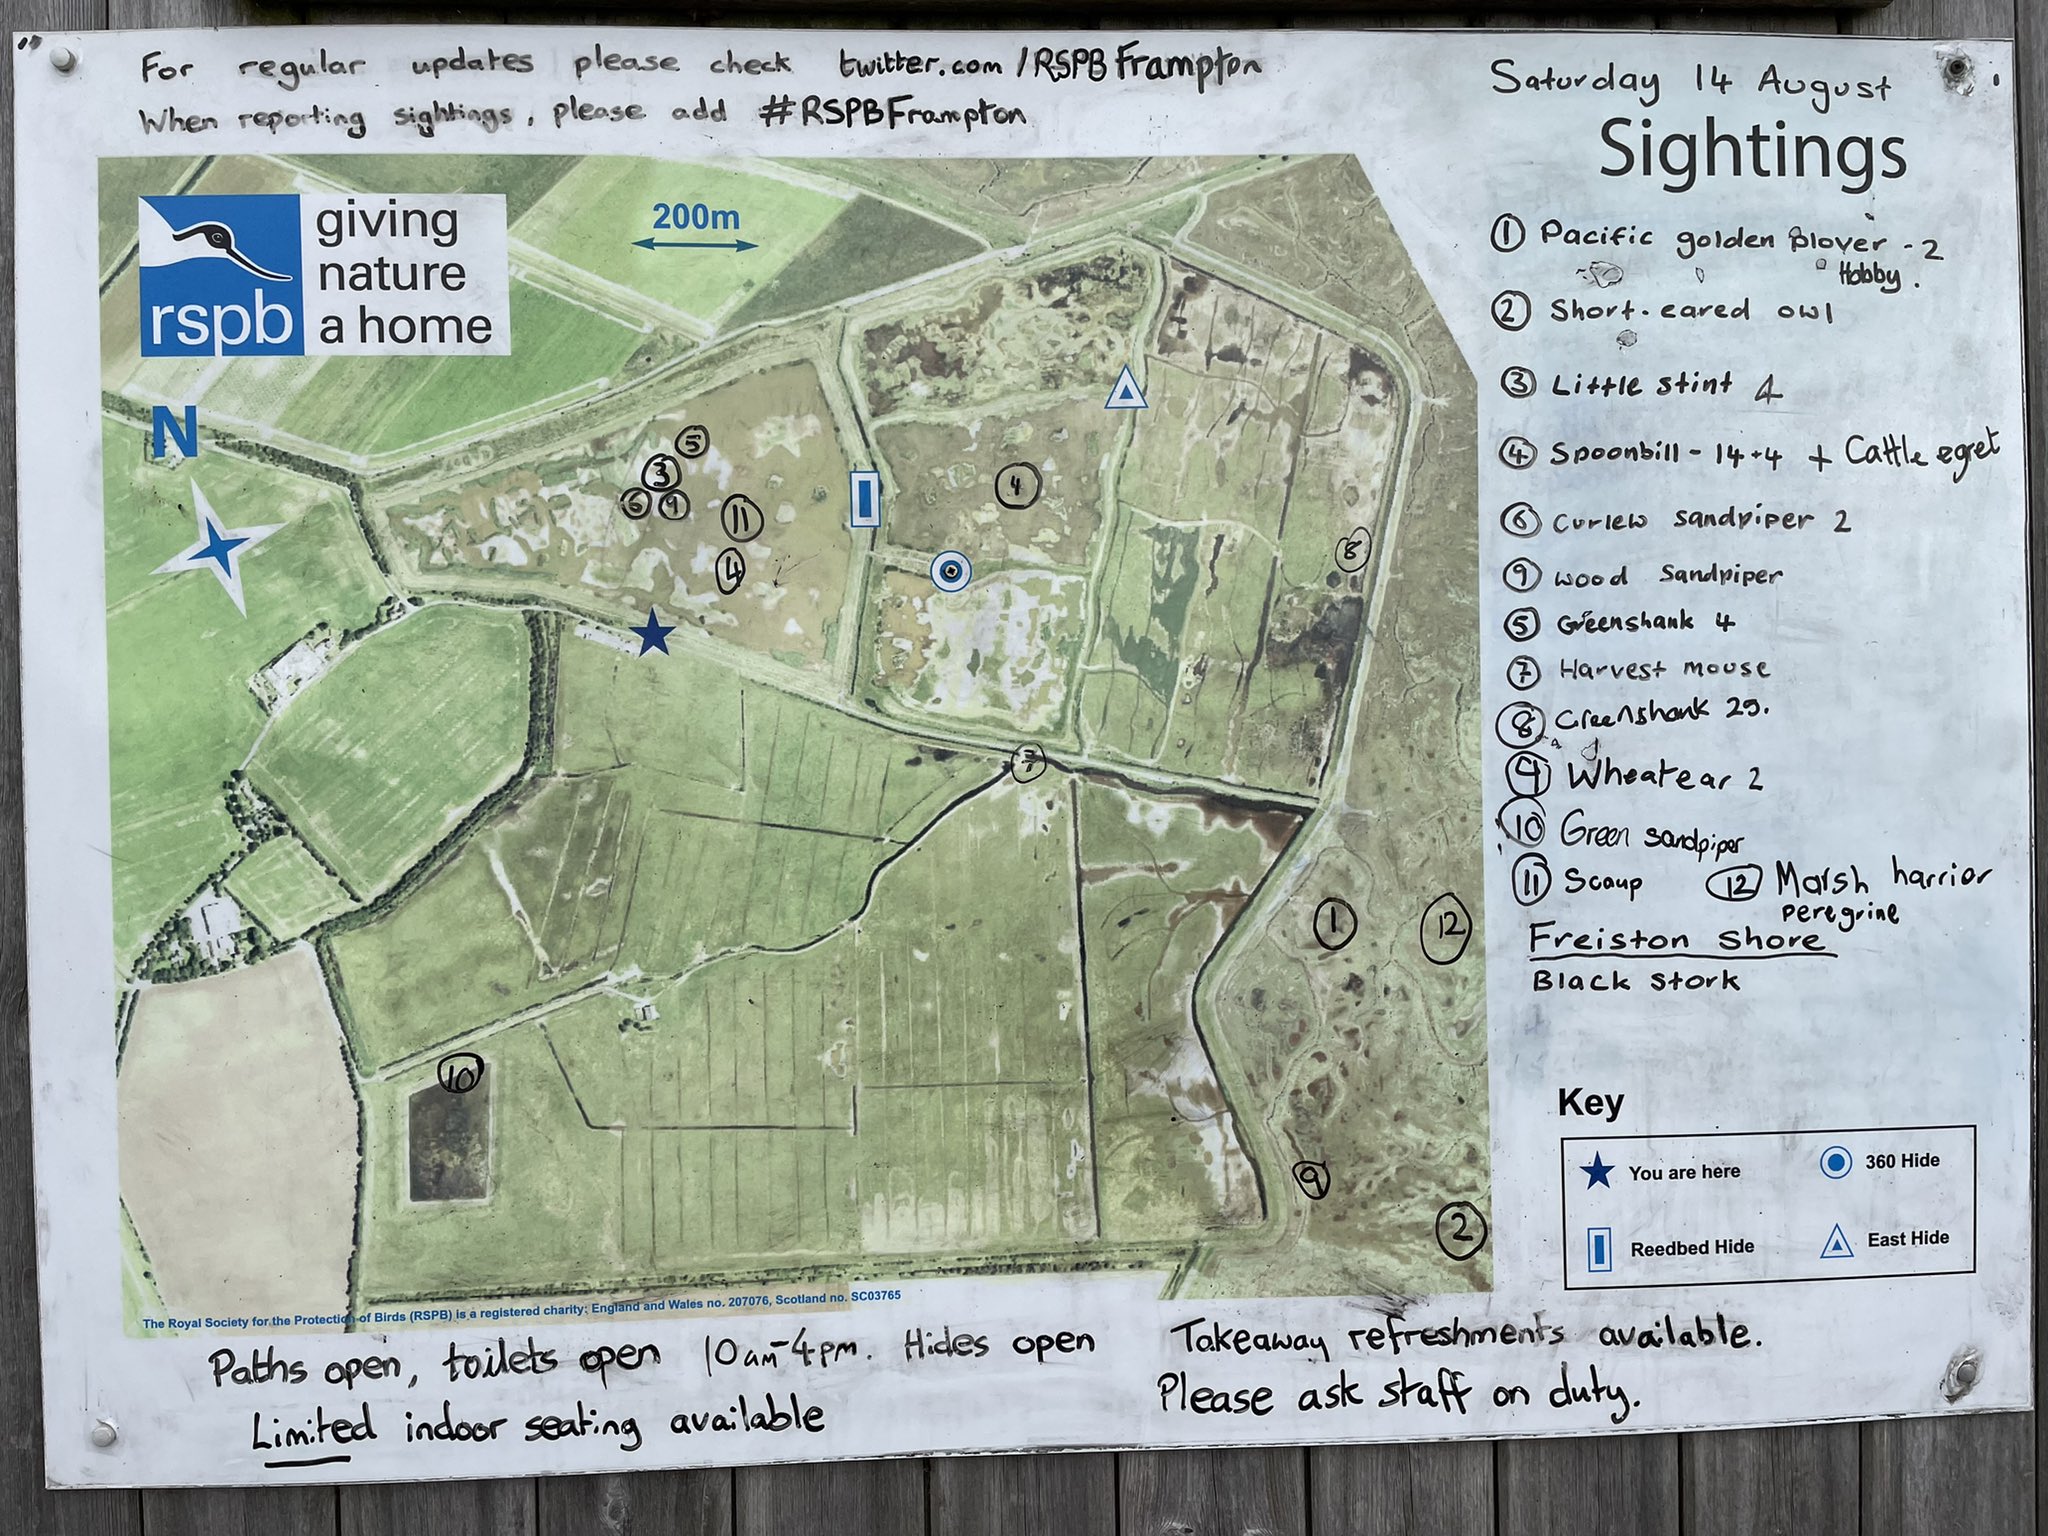 For regular updates please check twitter.com/RSPBFrampton
When reporting sightings, please add #RSPBFrampton
rspb
giving
nature
a home
200m
N
5
3
6 9
11
4
4
8
7
1
12
10
9
2
The Royal Society for the Protection of Birds (RSPB) is a registered charity: England and Wales no. 207076, Scotland no. SC03765
Saturday 14 August
Sightings
1 Pacific golden plover - 2
Hobby.
2 Short-eared owl
3 Little stint 4
4 Spoonbill - 14+4 + Cattle egret
6 Curlew sandpiper 2
9 Wood sandpiper
5 Greenshank 4
7 Harvest mouse
8 Greenshank 29.
9 Wheatear 2
10 Green sandpiper
11 Scaup 12 Marsh harrior
peregrine
Freiston Shore
Black stork
Key
You are here
360 Hide
Reedbed Hide
East Hide
Paths open, toilets open 10am-4pm. Hides open
Limited indoor seating available
Takeaway refreshments available.
Please ask staff on duty.